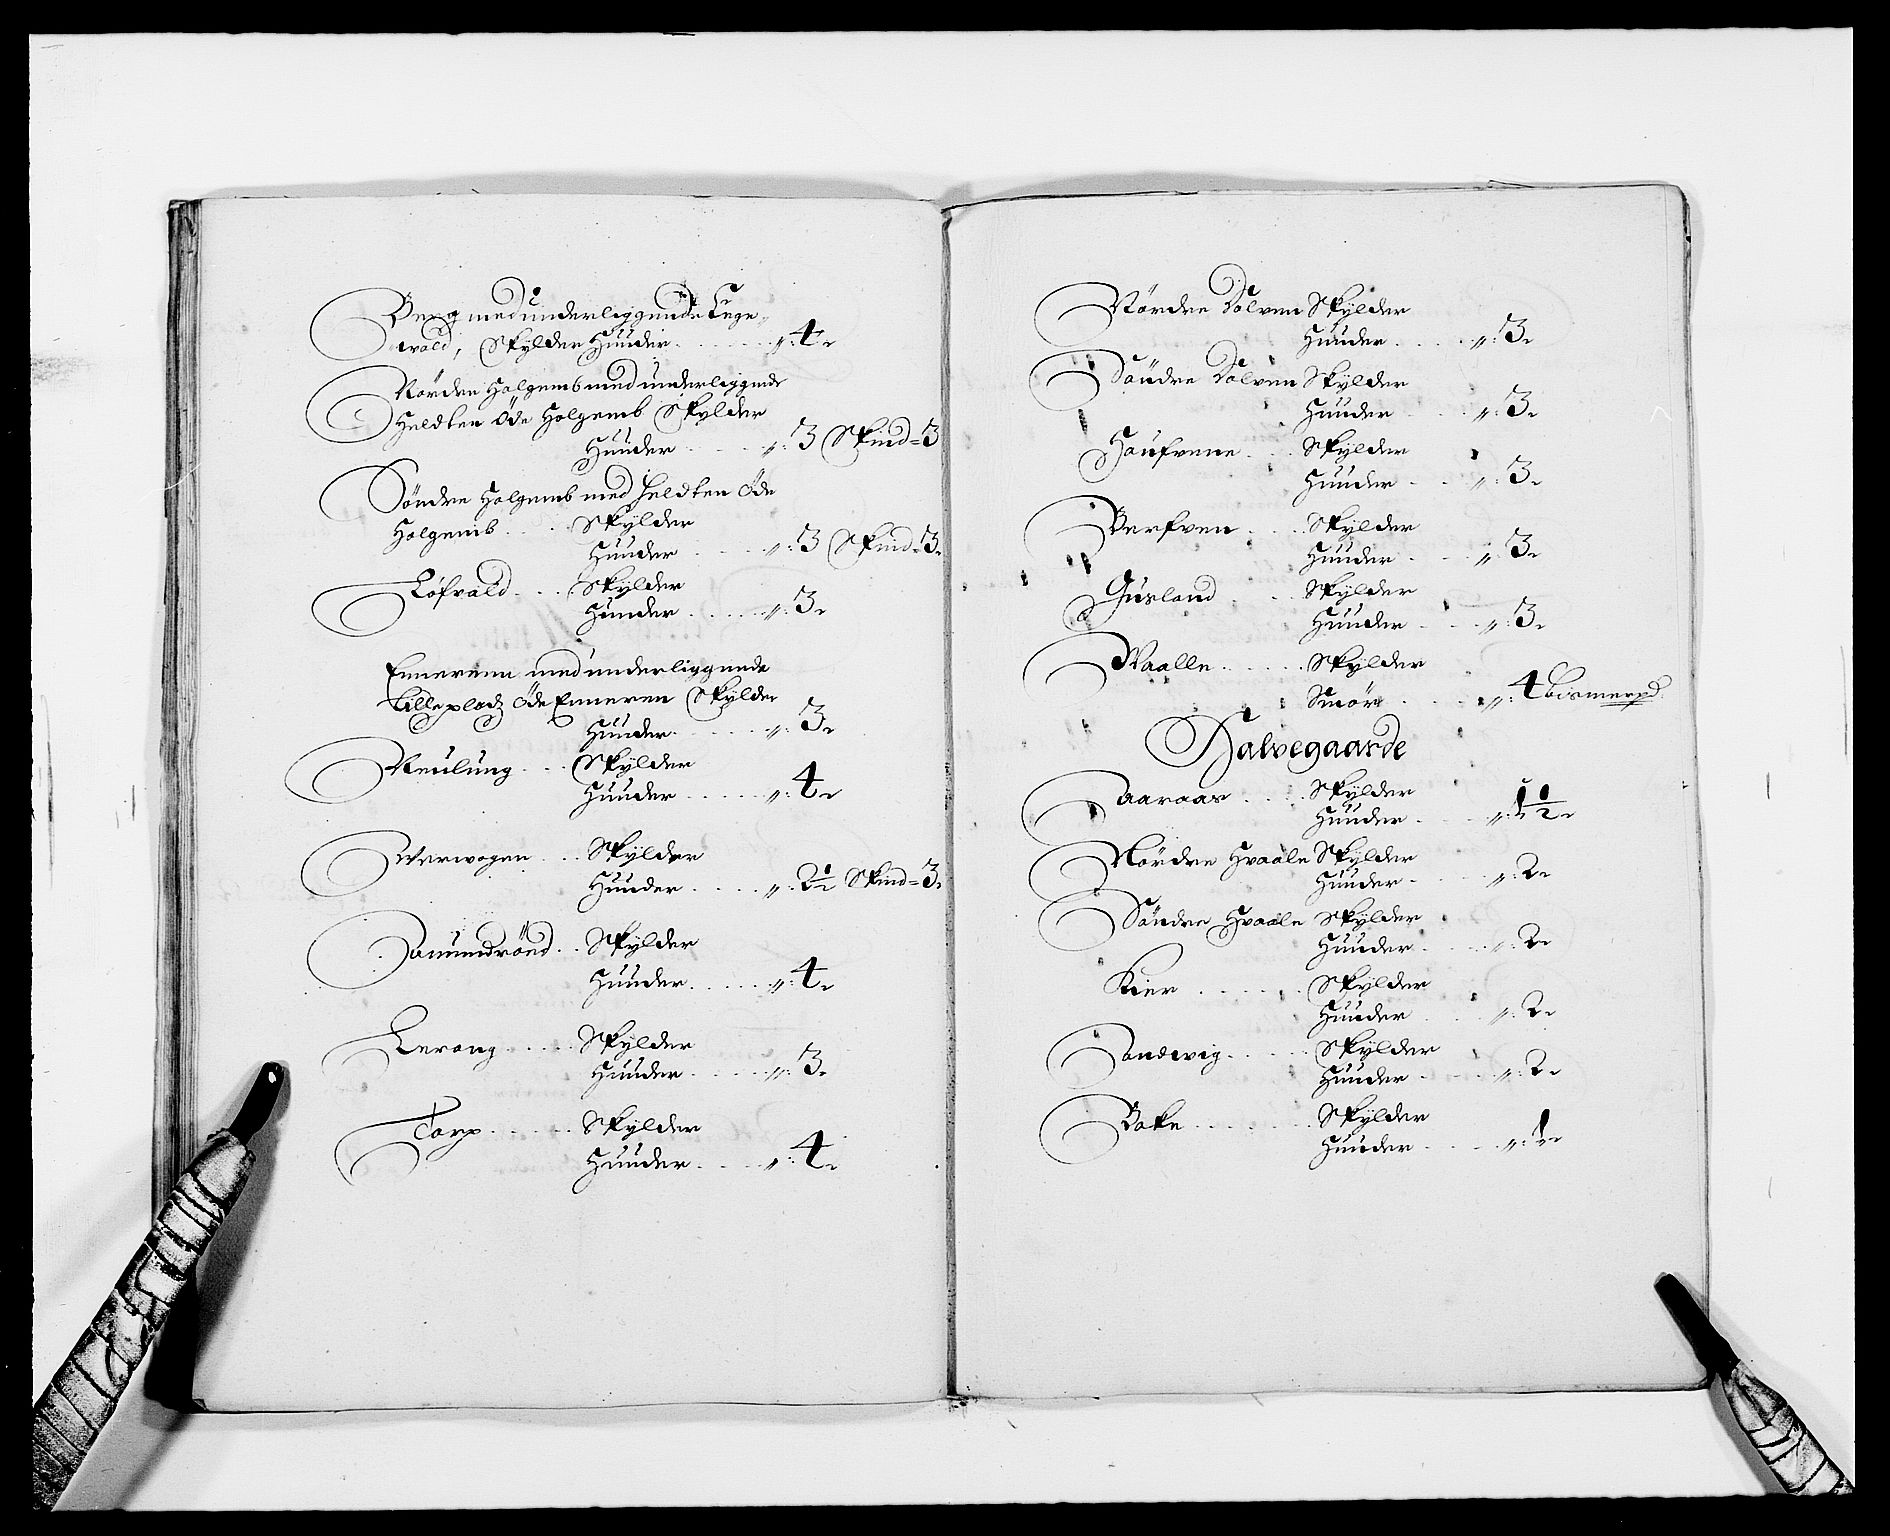 Berg med underliggende Tege-
wald, Skylder Huuder . . . . . . „: 4.
Nördre Holgemb med underliggende
Heldten Öde Holgemb Skylder
Huuder . . . . „: 3 Skind = 3
Söndre Holgemb med Heldten Öde
Holgemb . . . Skylder
Huuder . . . . „: 3 Skind = 3.
Löfvald . . . Skylder
Huuder . . . . . „: 3.
Enneren med underliggende
Lille plads Öde Enneren Skylder
Huuder . . . . . „: 3.
Reulung . . . Skylder
Huuder . . . . . „: 4.
Werwogen . . . Skylder
Huuder . . . . „: 2½ Skind = 3.
Amundröd . . Skylder
Huuder . . . . . „: 4.
Lerang . . . . . Skylder
Huuder . . . . . „: 3.
Torp . . . . . . Skylder
Huuder . . . . „: 4.
Nördre Dolven Skylder
Huuder . . . . . „: 3.
Söndre Dolven Skylder
Huuder . . . . „: 3.
Haufvene . . . Skylder
Huuder . . . „: 3.
Berfven . . . . Skylder
Huuder . . . . „: 3.
Gusland . . . . Skylder
Huuder . . . . „: 3.
Waalle . . . . . Skylder
Smör . . . . . „: 4 bismerpd.
Halvegaarde
Aaraas . . . . Skylder
Huuder . . . . „: 1½.
Nördre Hvaale Skylder
Huuder . . . . „: 2.
Söndre Hvaale Skylder
Huuder . . . . „: 2.
Kier . . . . . . Skylder
Huuder . . . . „: 2.
Sandwig . . . . . Skylder
Huuder . . . . . „: 2.
Bake . . . . . . . Skylder
Huuder . . . . . „: 1.